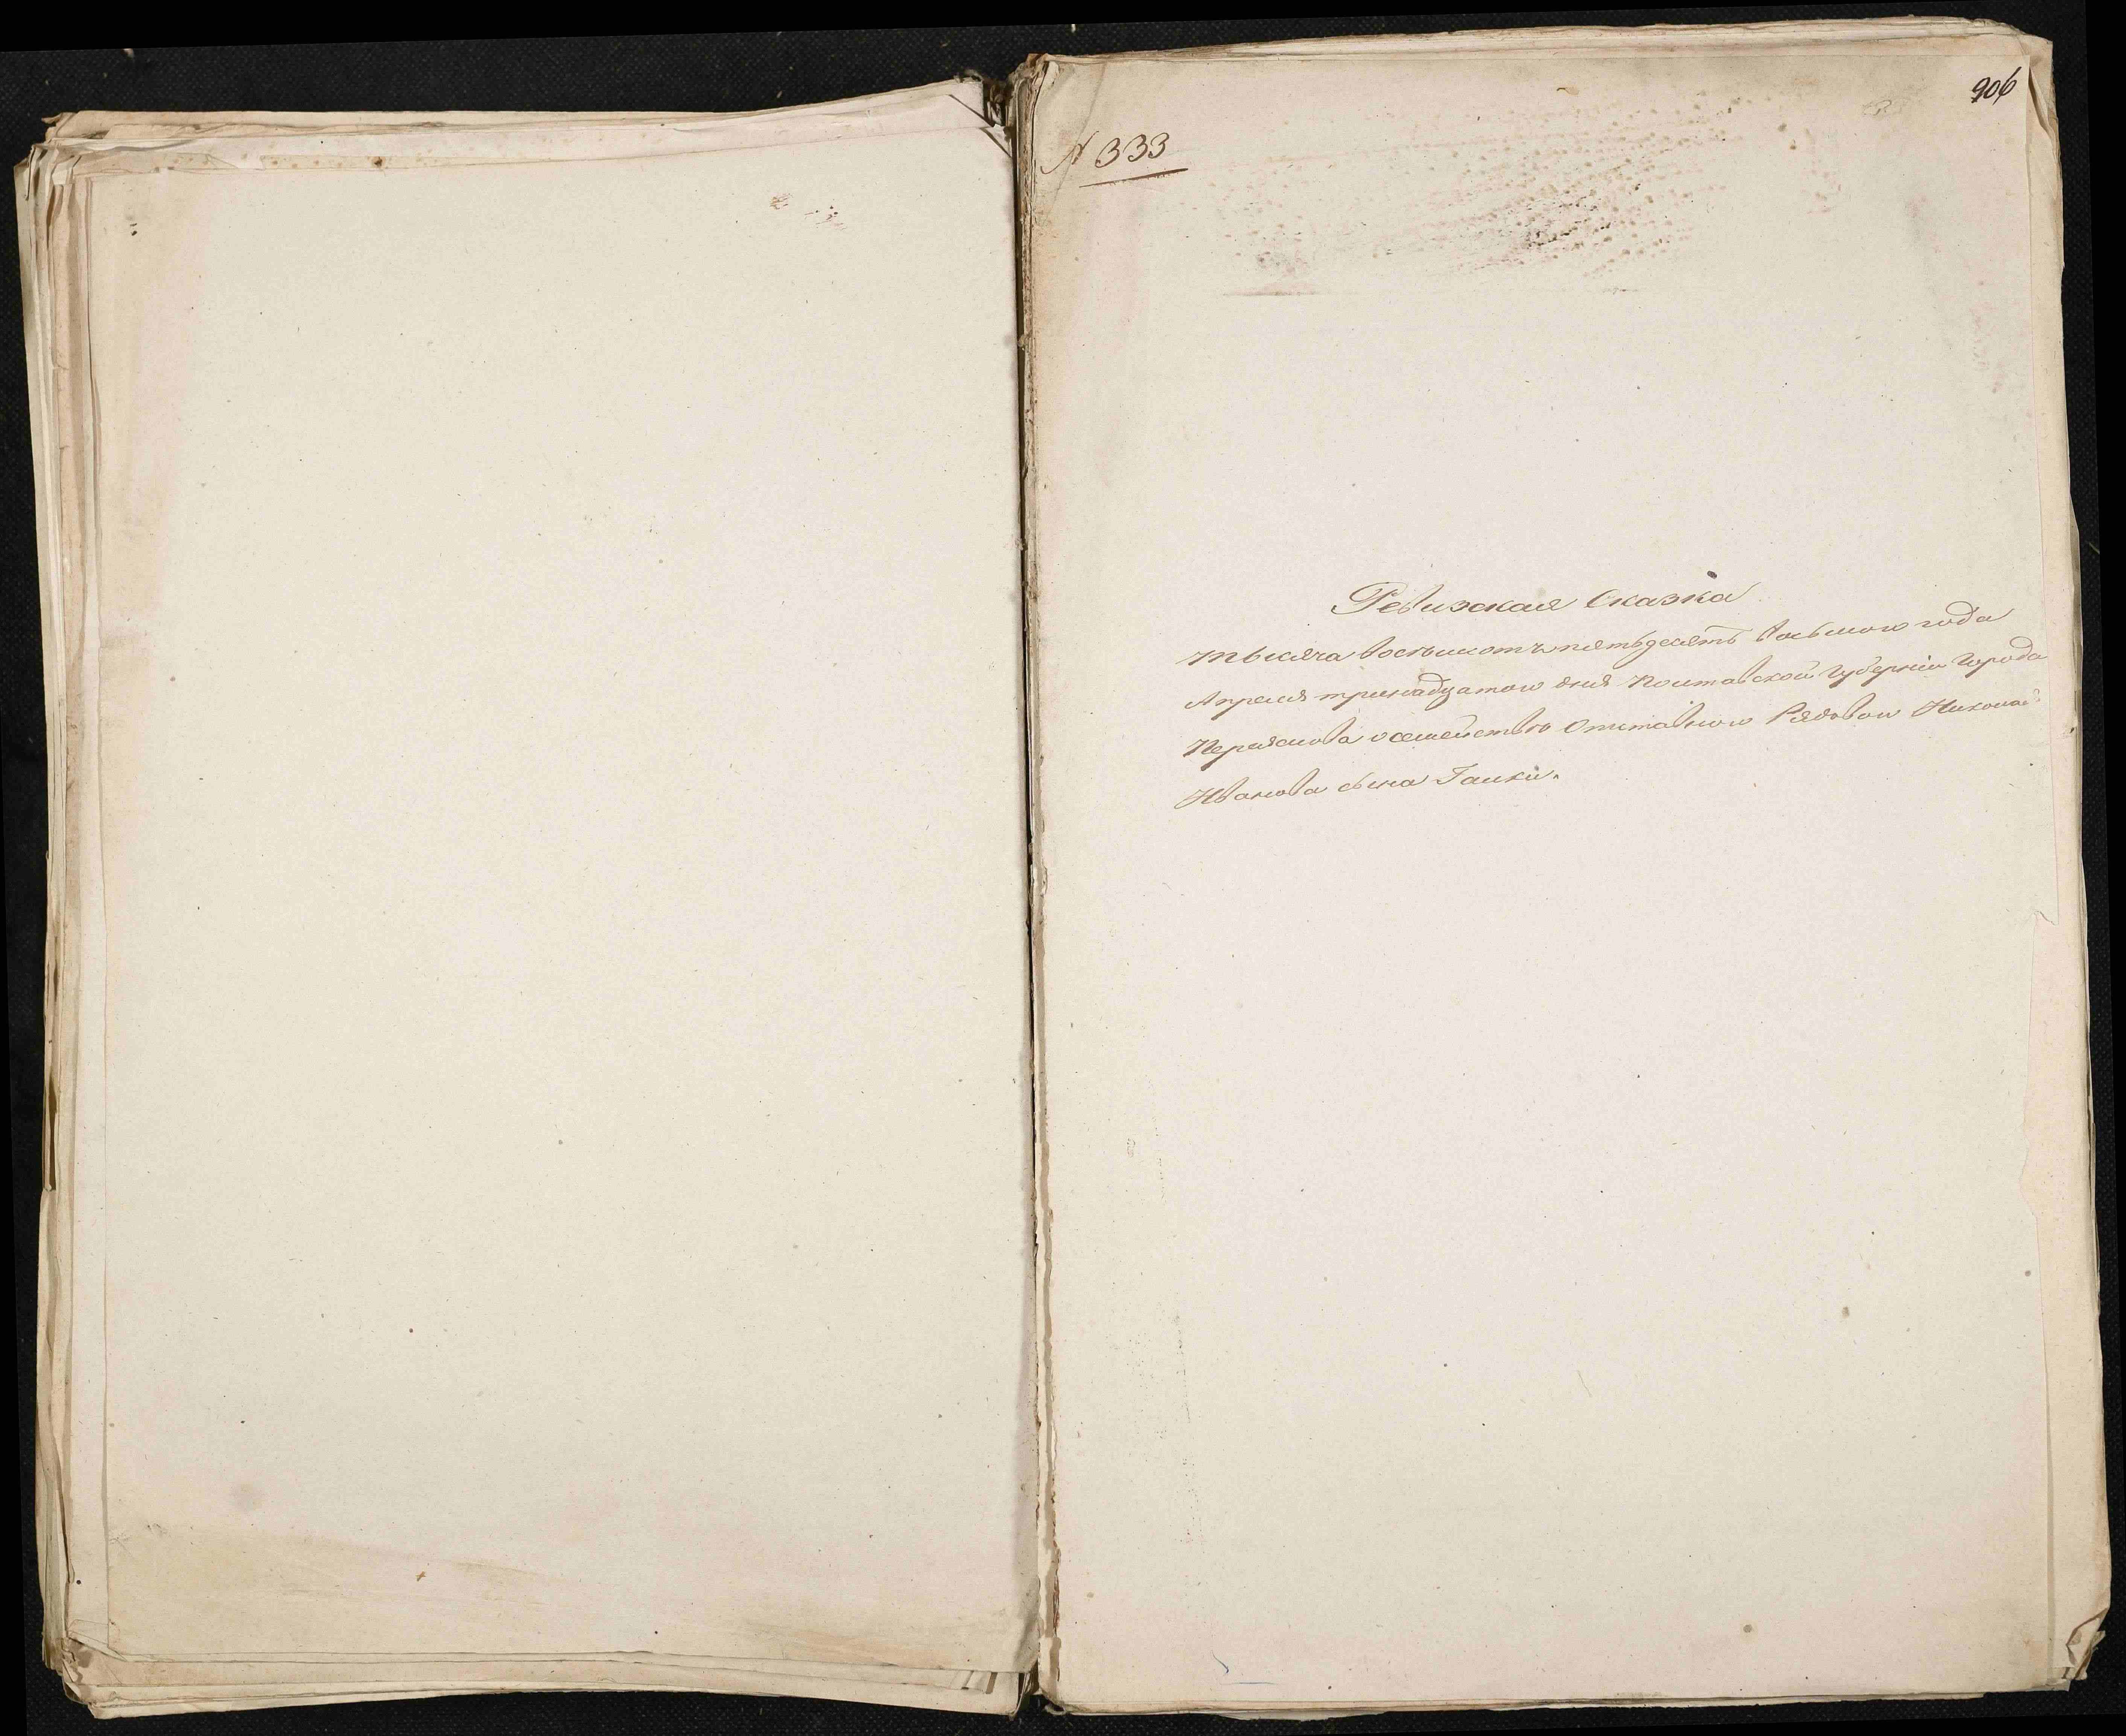 906
№ 333
Ревизская Сказка
тысяча восемсотъ пятьдесятъ восьмого года
Апреля тринадцатого дня Полтавской Губерніи Города
Переяслова о семействе Отставного Рядовой Николай
Иванова сына Галки.